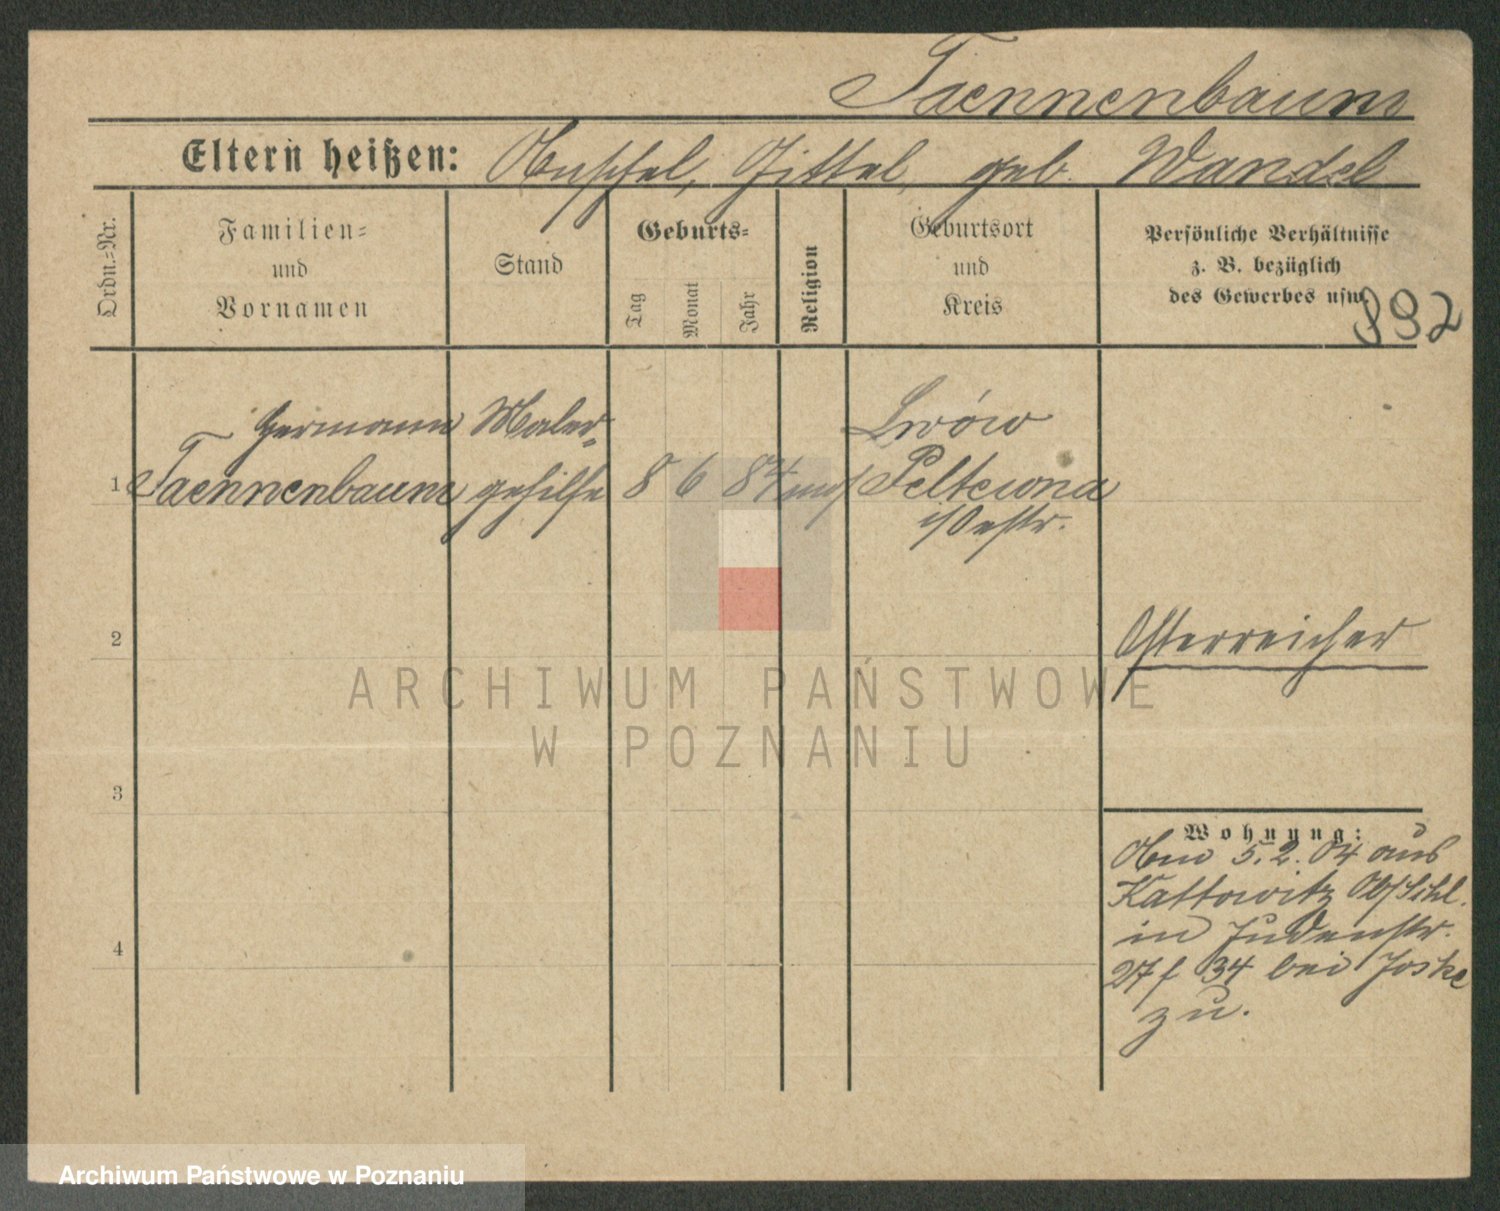 Taennenbaum
Eltern heißen: Anschel, Gittel, geb. Wandel
Ordn.-Nr.
Familien-
und
Vornamen
Stand
Geburts-
Tag
Monat
Jahr
Religion
Geburtsort
und
Kreis
Persönliche Verhältnisse
z. B. bezüglich
des Gewerbes usw.
892
1
Hermann
Taennenbaum
Maler-
gehilfe
8
6
84
mos
Lwów
Peltewna
i/Oestr.
2
Österreicher
3
Wohnung:
Am 5.2.04 aus
Kattowitz Ob/Schl.
in Judenstr.
27 f 34 bei Joske
zu.
4
ARCHIWUM PAŃSTWOWE
W POZNANIU
Archiwum Państwowe w Poznaniu